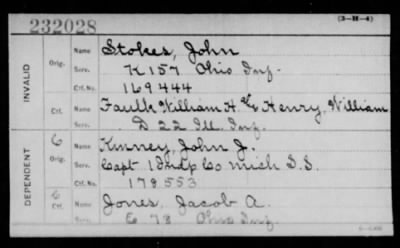 (3-H-4)
232028
INVALID
Orig. Name Stokes, John
Serv. K 157 Ohio Inf.
Ctf. No. 169444
Ctf. Name Faulk William H. Henry, William
Serv. D 22 Ill. Inf.
DEPENDENT
6 Orig. Name Kinney, John J.
Serv. Capt 1 Indp Co Mich S.S.
Ctf. No. 178553
6 Ctf. Name Jones, Jacob A.
Serv. E 78 Ohio Inf.